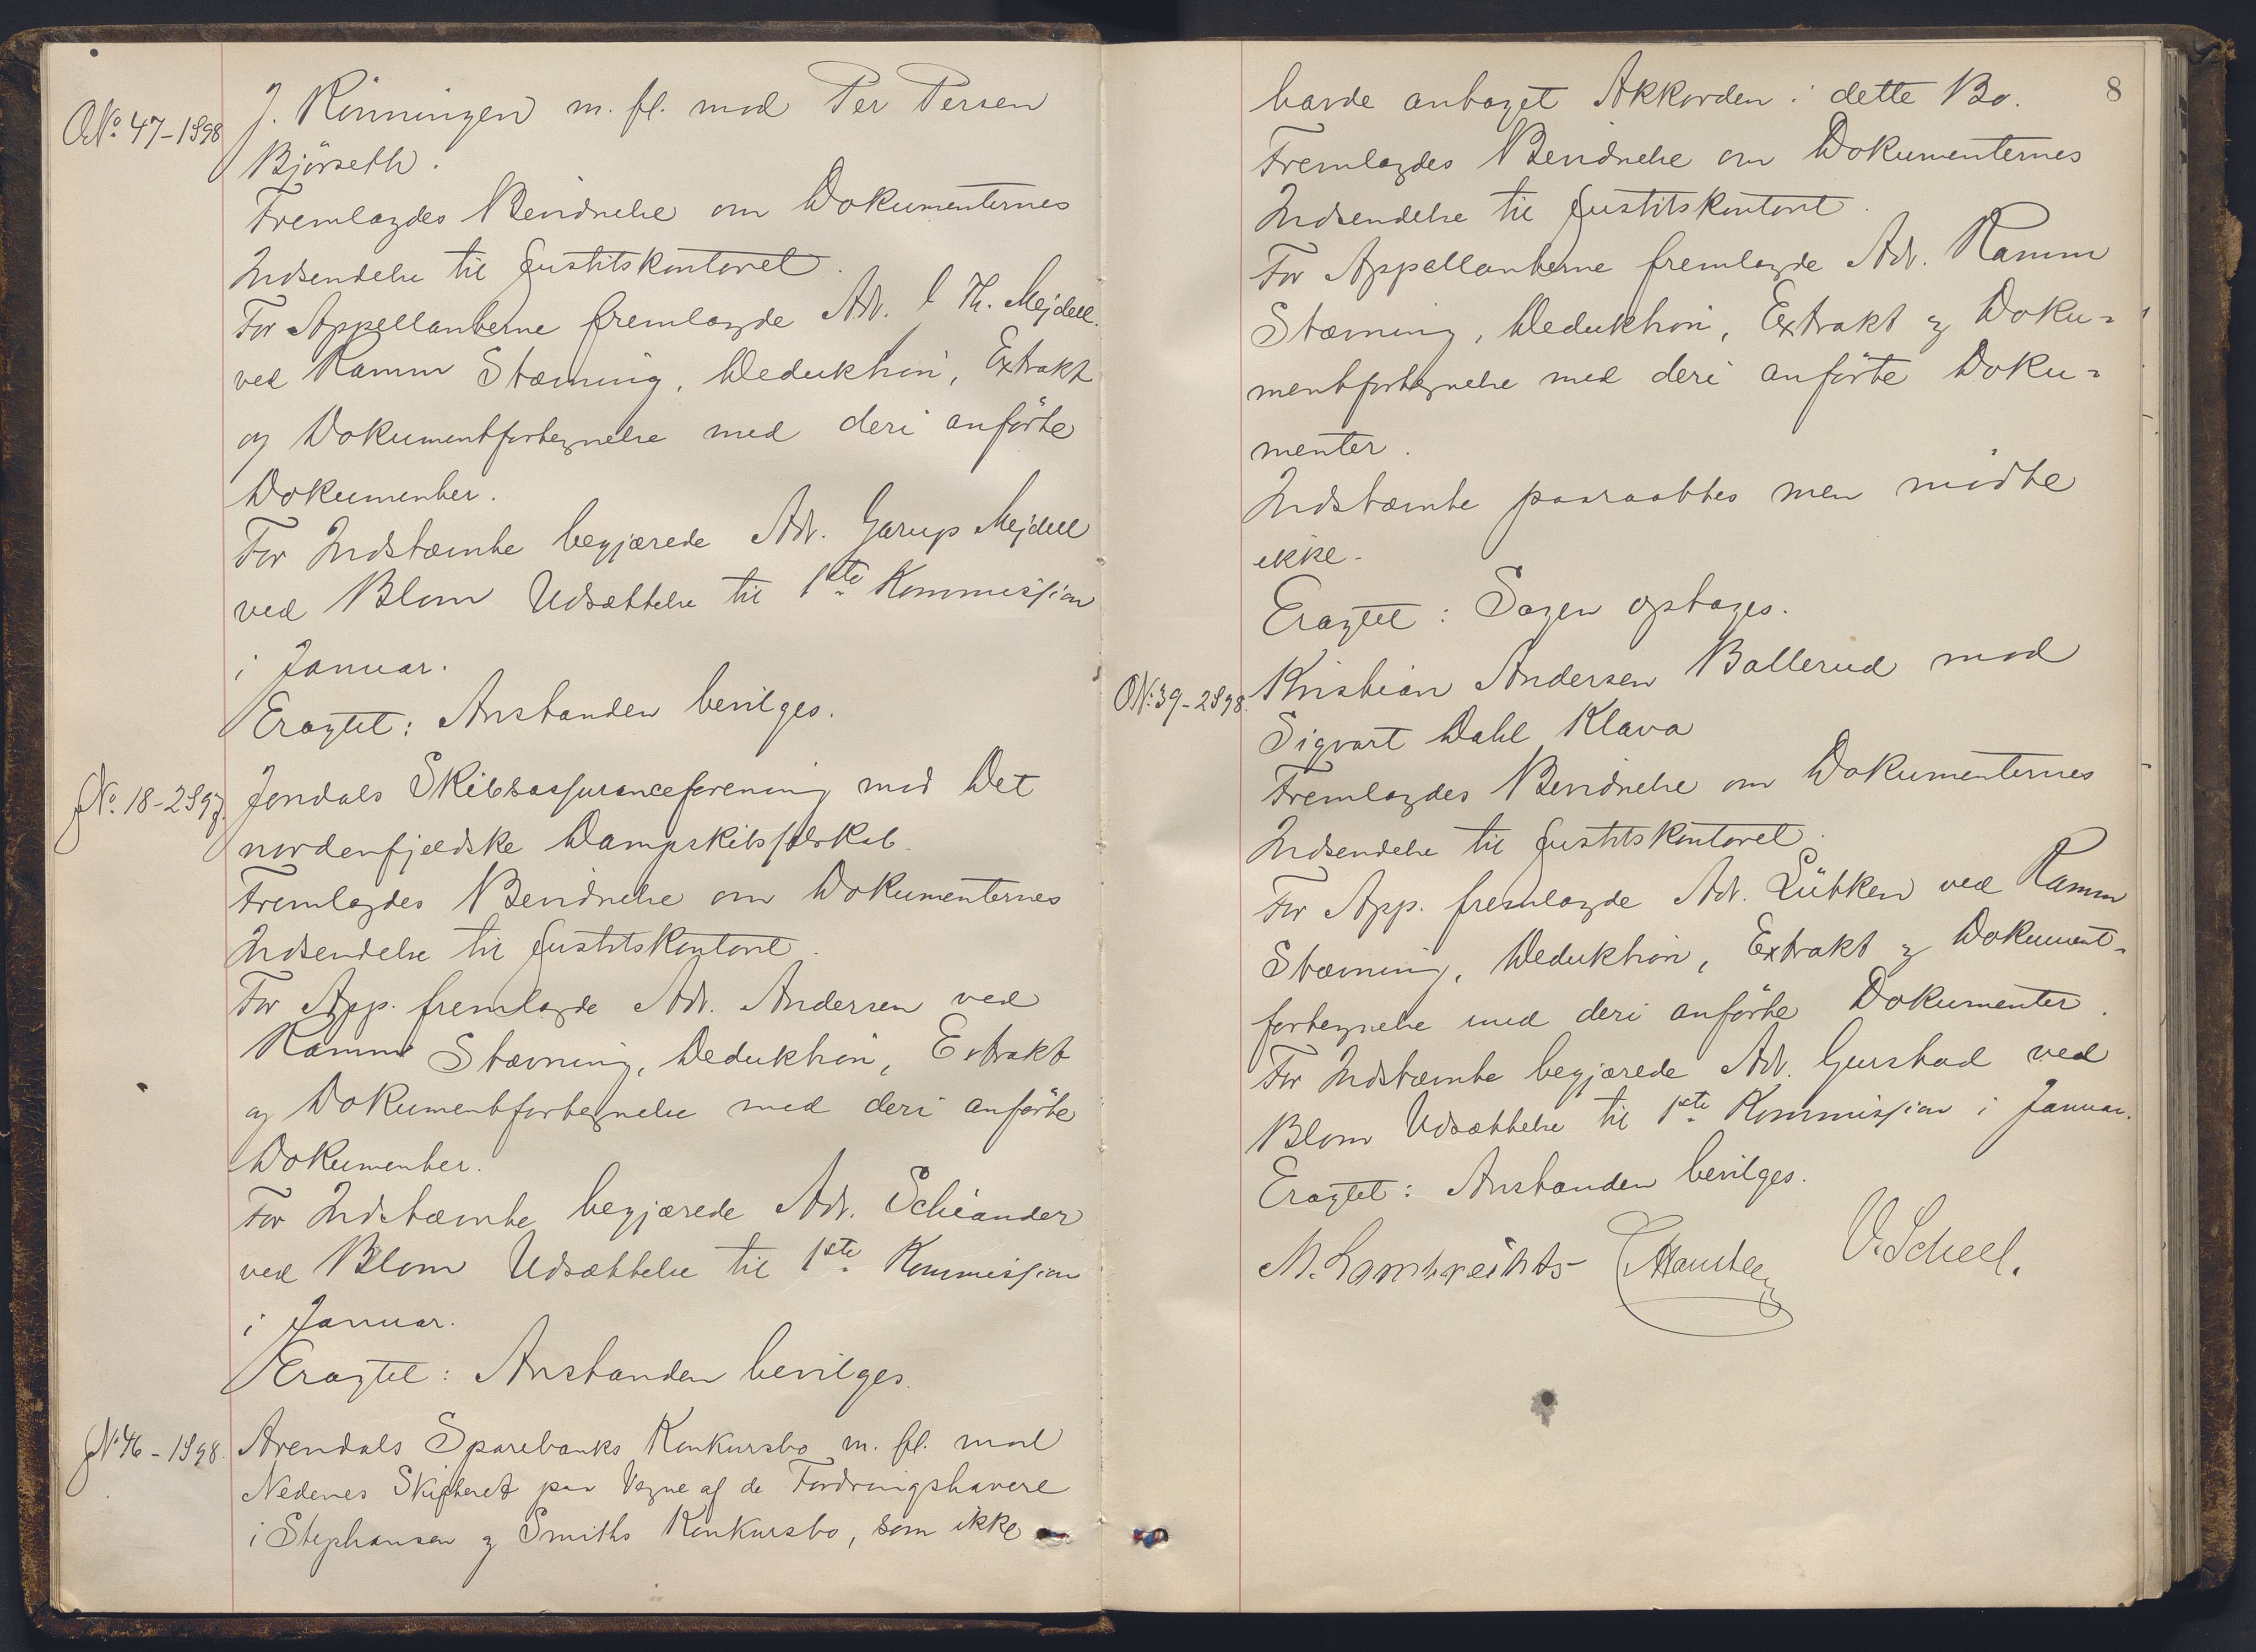 No. 47-1898
J. Rönningen m. fl. mod Per Persen
Björseth.
Fremlagdes Bevidnelse om Dokumenternes
Indsendelse til Justitskontoret.
For Appellanterne fremlagde Adv. Th. Mejdell
ved Ramm Stævning, Deduktion, Extrakt
og Dokumentfortegnelse med deri anförte
Dokumenter.
For Indstævnte begjærede Adv. Garup Mejdell
ved Blom Udsættelse til 1ste Kommission
i Januar.
Eragtet: Anstanden bevilges.
No. 18-2897.
Jondals Skibsassuranceforening mod Det
nordenfjeldske Dampskibsselskab.
Fremlagdes Bevidnelse om Dokumenternes
Indsendelse til Justitskontoret.
For App. fremlagde Adv. Andersen ved
Ramm Stævning, Deduktion, Extrakt
og Dokumentfortegnelse med deri anförte
Dokumenter.
For Indstævnte begjærede Adv. Schiander
ved Blom Udsættelse til 1ste Kommission
i Januar.
Eragtet: Anstanden bevilges.
No 46-1898.
Arendals Sparebanks Konkursbo m. fl. mod
Nedenes Skifteret paa Vegne af de Fordringshavere
i Stephansen og Smiths Konkursbo, som ikke
8
havde antaget Akkorden i dette Bo.
Fremlagdes Bevidnelse om Dokumenternes
Indsendelse til Justitskontoret.
For Appellanterne fremlagde Adv. Ramm
Stævning, Deduktion, Extrakt og Doku=
mentfortegnelse med deri anförte Doku=
menter.
Indstævnte paaraabtes men mödte
ikke.
Eragtet: Sagen optages.
No. 39-2898.
Kristian Andersen Ballerud mod
Sigvart Dahl Klava
Fremlagdes Bevidnelse om Dokumenternes
Indsendelse til Justitskontoret.
For App. fremlagde Adv. Lütken ved Ramm
Stævning, Deduktion, Extrakt og Dokument=
fortegnelse med deri anförte Dokumenter.
For Indstævnte begjærede Adv. Gurstad ved
Blom Udsættelse til 1ste Kommission i Januar.
Eragtet: Anstanden bevilges.
M. Lambrechts V. Scheel.